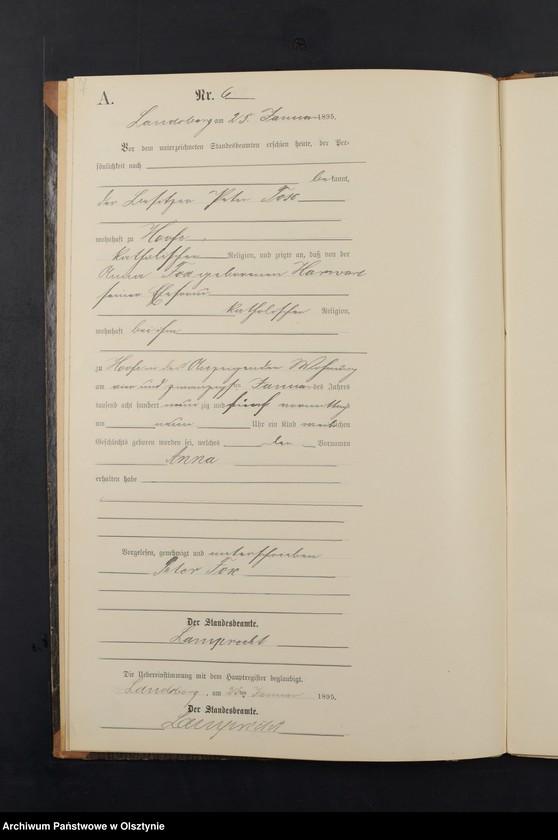 A.
Nr. 6
Landsberg am 25. Januar 1895.
Vor dem unterzeichneten Standesbeamten erschien heute, der Per-
sönlichkeit nach
bekannt,
der Besitzer Peter Fox
wohnhaft zu Hoofe,
katholischer Religion, und zeigte an, daß von der
Anna Fox geborenen
seiner Ehefrau
katholischer Religion,
wohnhaft bei ihm
zu Hoofe in des Anzeigenden Wohnung
am vier und zwanzigsten Januar des Jahres
tausend acht hundert neun zig und fünf vormittags
um neun Uhr ein Kind weiblichen
Geschlechts geboren worden sei, welches den Vornamen
Anna
erhalten habe
Vorgelesen, genehmigt und unterschrieben
Peter Fox
Der Standesbeamte.
Lamprecht
Die Uebereinstimmung mit dem Hauptregister beglaubigt.
Landsberg, am Januar 1895.
Der Standesbeamte.
Lamprecht
Archiwum Państwowe w Olsztynie